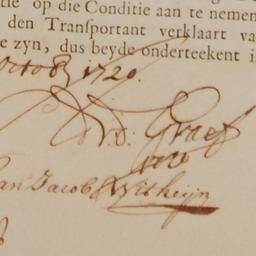 tie op die Conditie aan te nemen
den Transportant verklaart va
e zyn, dus beyde onderteekent i
Octob 1720.
D: Graef
van Jacob